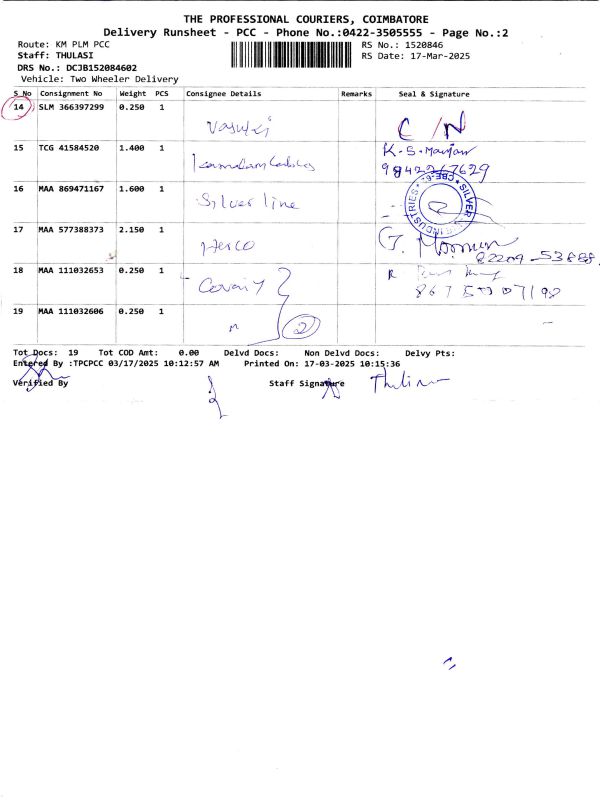 THE PROFESSIONAL COURIERS, COIMBATORE
Delivery Runsheet - PCC - Phone No.:0422-3505555 - Page No.:2
Route: KM PLM PCC
RS No.: 1520846
Staff: THULASI
RS Date: 17-Mar-2025
DRS No.: DCJB152084602
Vehicle: Two Wheeler Delivery
S_No Consignment No Weight PCS Consignee Details Remarks Seal & Signature
14 SLM 366397299 0.250 1
Vasuki C/N
15 TCG 41584520 1.400 1 K-S-
16 MAA 869471167 1.600 1 Silver line
SILVER INDUSTRIES
17 MAA 577388373 2.150 1
18 MAA 111032653 0.250 1
19 MAA 111032606 0.250 1
2
Tot Docs: 19 Tot COD Amt: 0.00 Delvd Docs: Non Delvd Docs: Delvy Pts:
Entered By :TPCPCC 03/17/2025 10:12:57 AM Printed On: 17-03-2025 10:15:36
Verified By Staff Signature